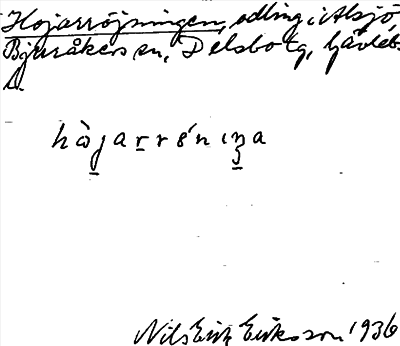 Hojarröjningen, odling i Alsjö,
Bjuråkers sn, Delsbo tg, Gävleb.
l.
Nils Erik Eriksson 1936